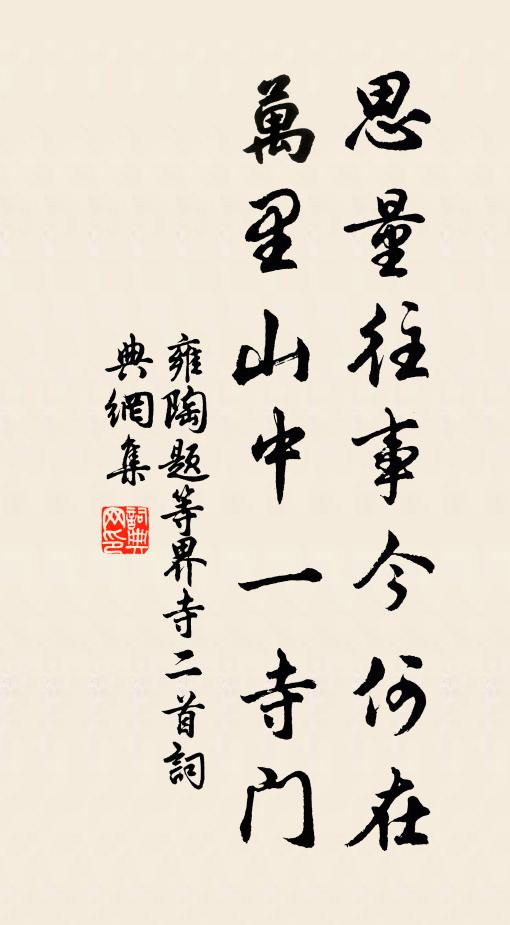 思量往事今何在
萬里山中一寺門
雍陶題等界寺二首詞
典網集
詞典網印